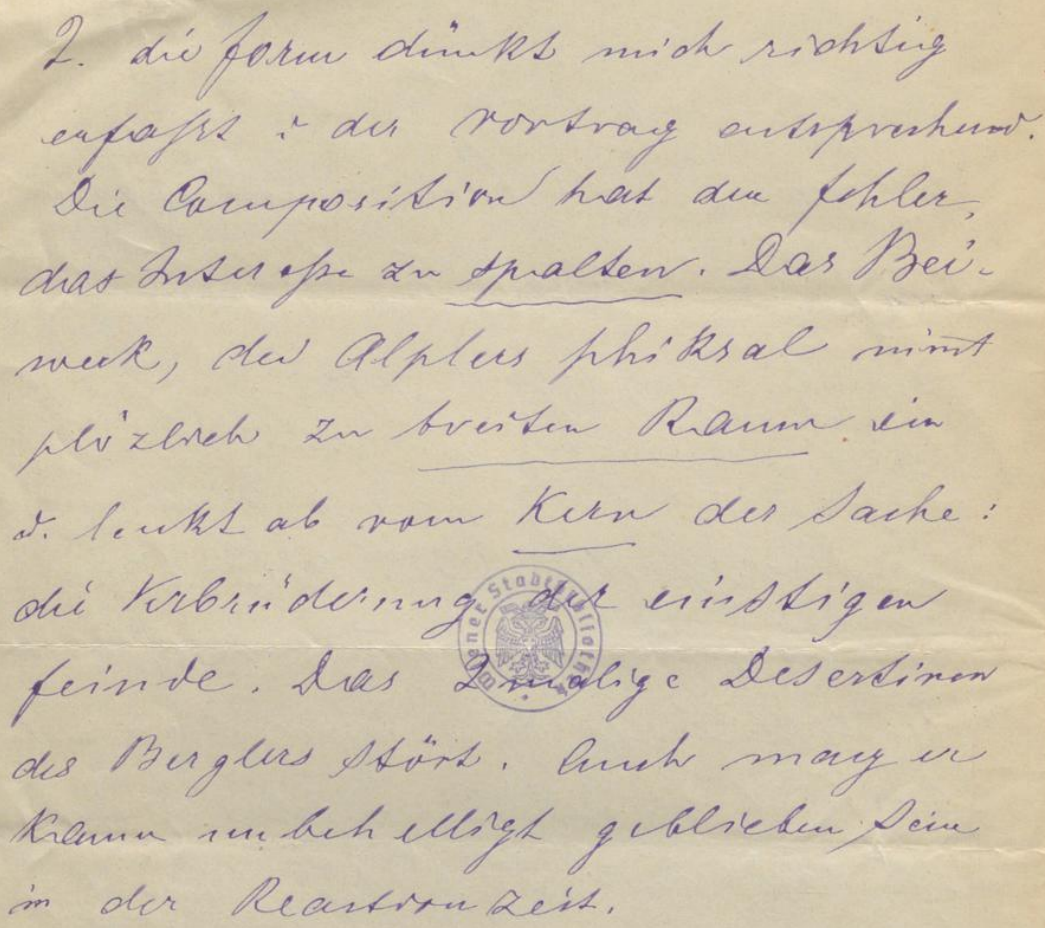 2. die form dünkt mich richtig
erfaßt u der Vortrag entsprechend.
Die Composition hat den fehler,
das Intereße zu spalten. Das Bei-
werk, des Alplers schiksal nim̄t
plözlich zu breiten Raum ein
u. lenkt ab vom Kern der Sache:
die Verbrüderung der einstigen
feinde. Das 2malige Desertiren
des Berglers stört. Auch mag er
kaum unbehelligt geblieben sein
in der Reactionzeit.
Wiener Stadtbibliothek